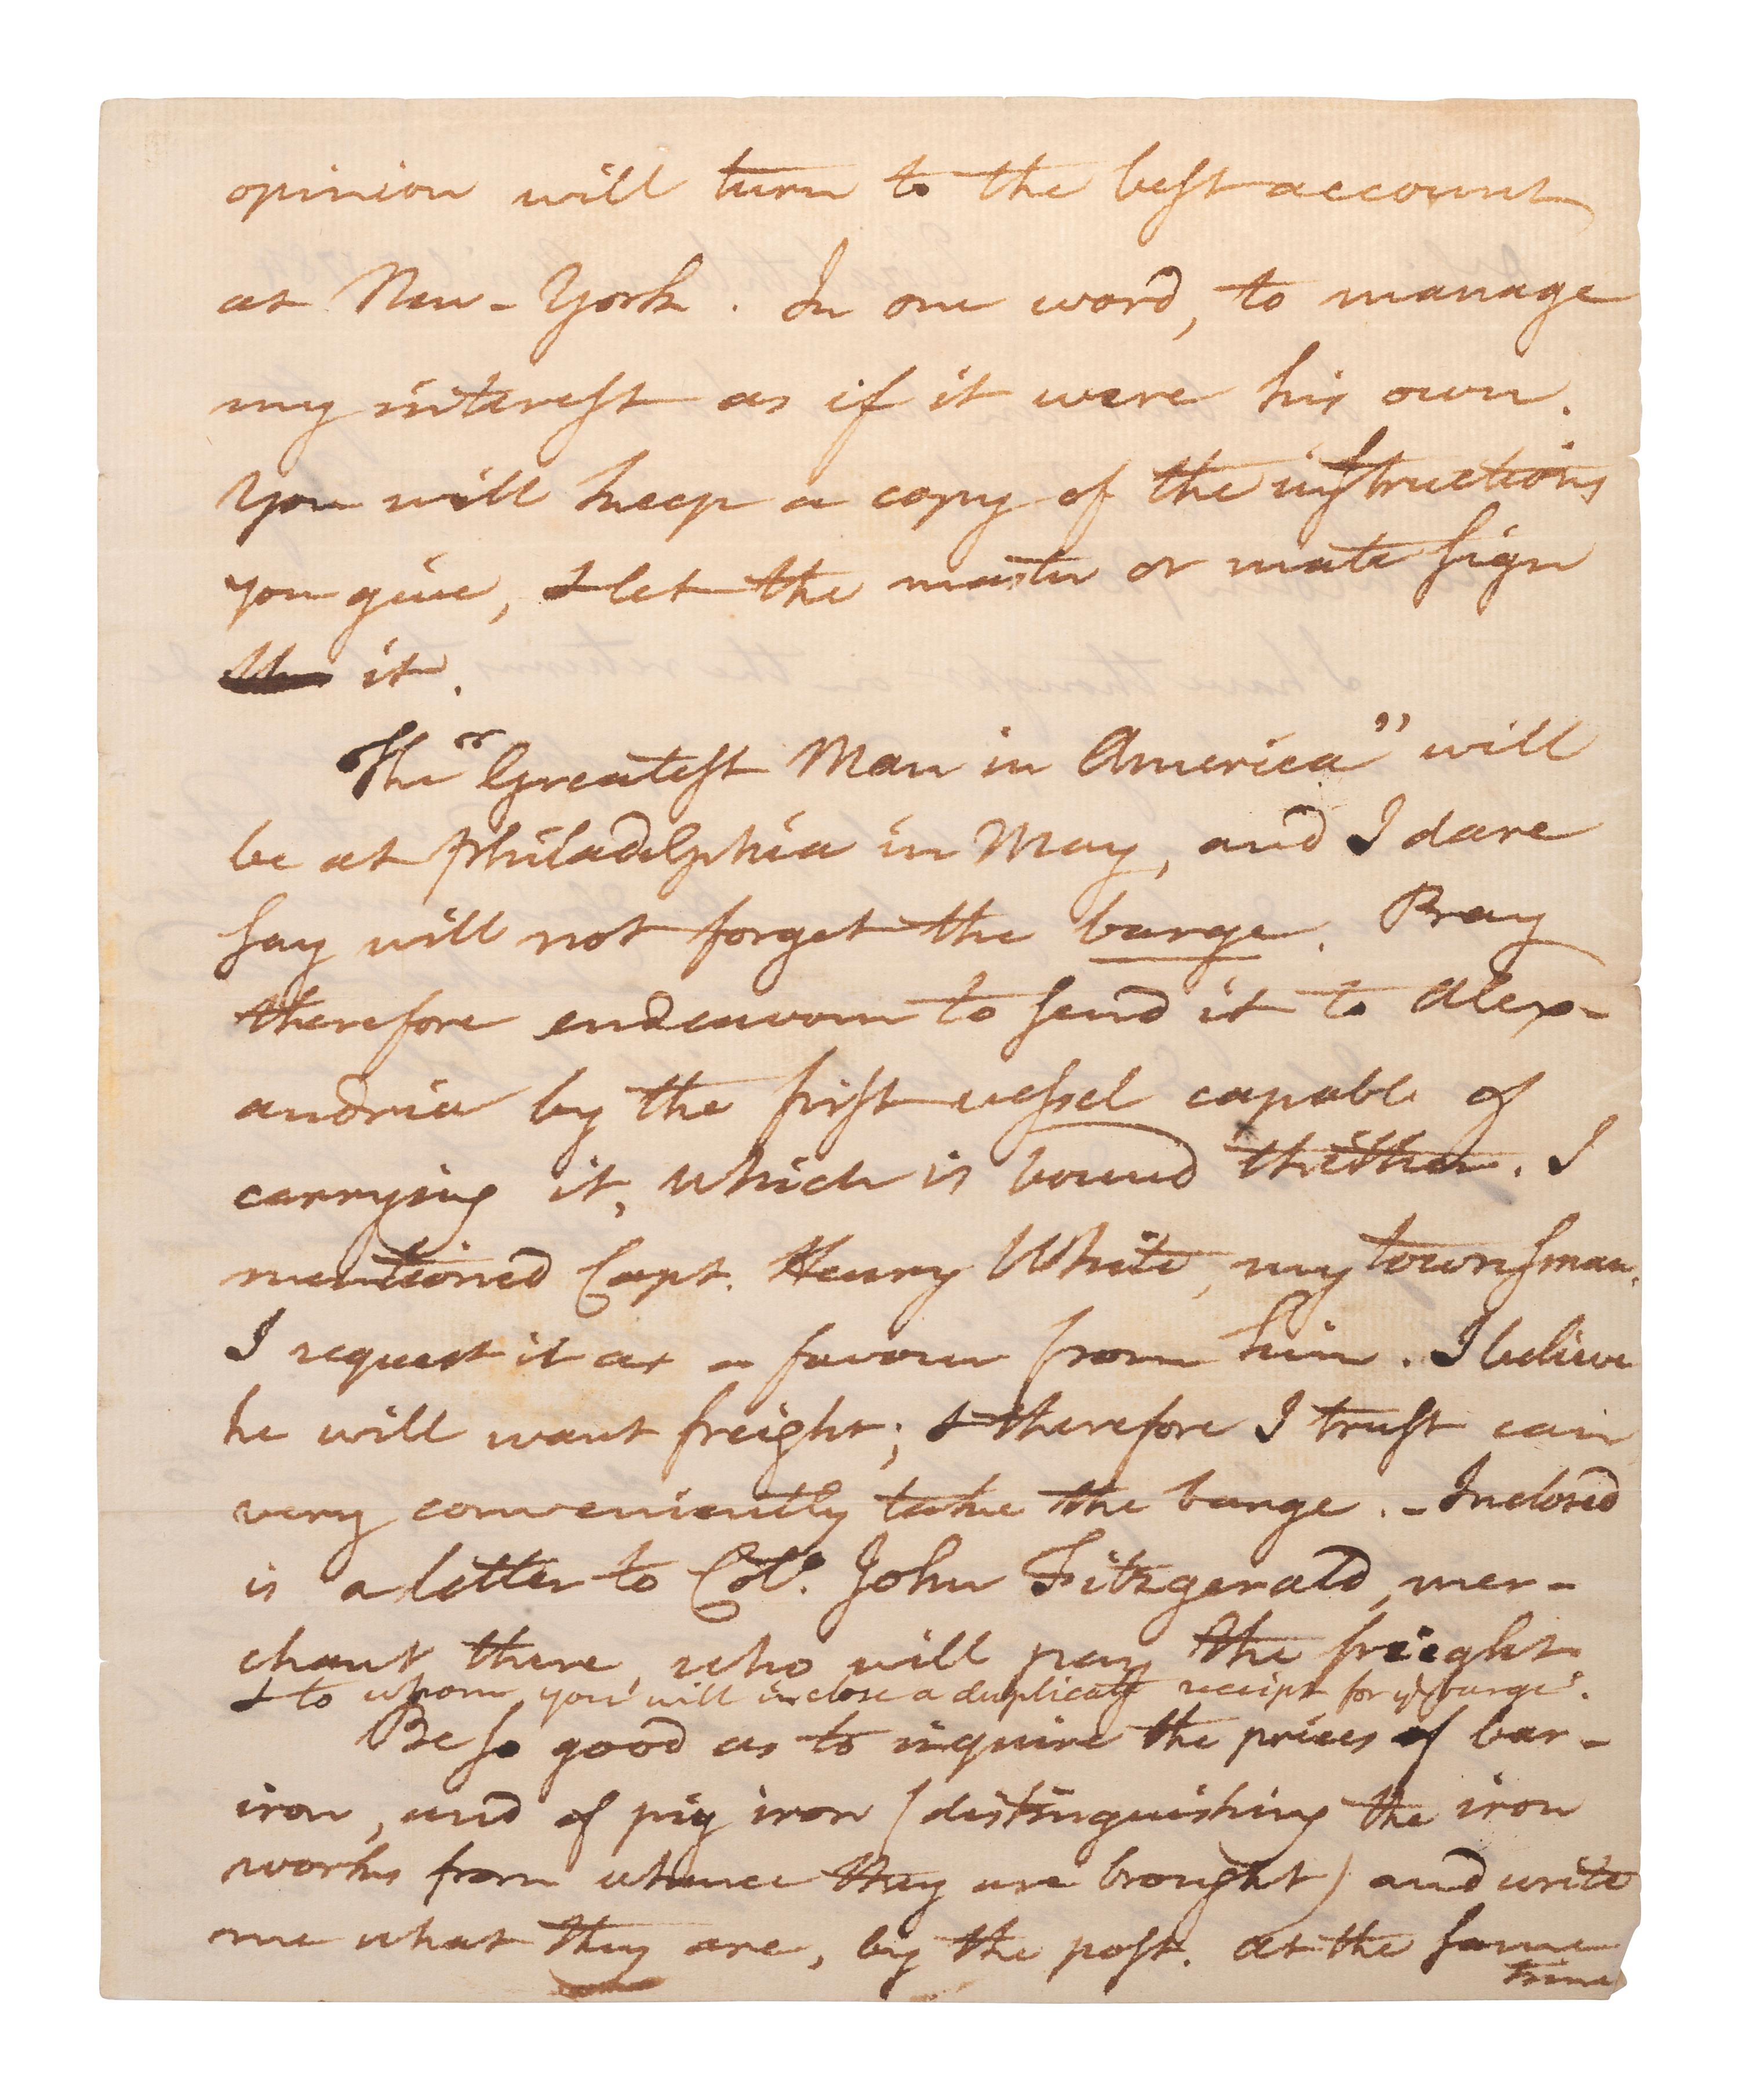 opinion will turn to the best account
at New-York. In one word, to manage
my interest as if it were his own.
You will keep a copy of the instructions
you give, & let the master or mate sign
it.
The "Greatest Man in America" will
be at Philadelphia in May, and I dare
say will not forget the barge. Pray
therefore endeavour to send it to Alex-
andria by the first vessel capable of
carrying it, which is bound thither. I
mentioned Capt. Henry White, my townsman.
I request it as a favour from him. I believe
he will want freight; & therefore I trust can
very conveniently take the barge. - Inclosed
is a letter to Col. John Fitzgerald, mer-
chant there, who will pay the freight
& to whom you will inclose a duplicate receipt for ye barge.
Be so good as to inquire the prices of bar-
iron, and of pig iron (distinguishing the iron
works from whence they are brought) and write
me what they are, by the post. at the same
time